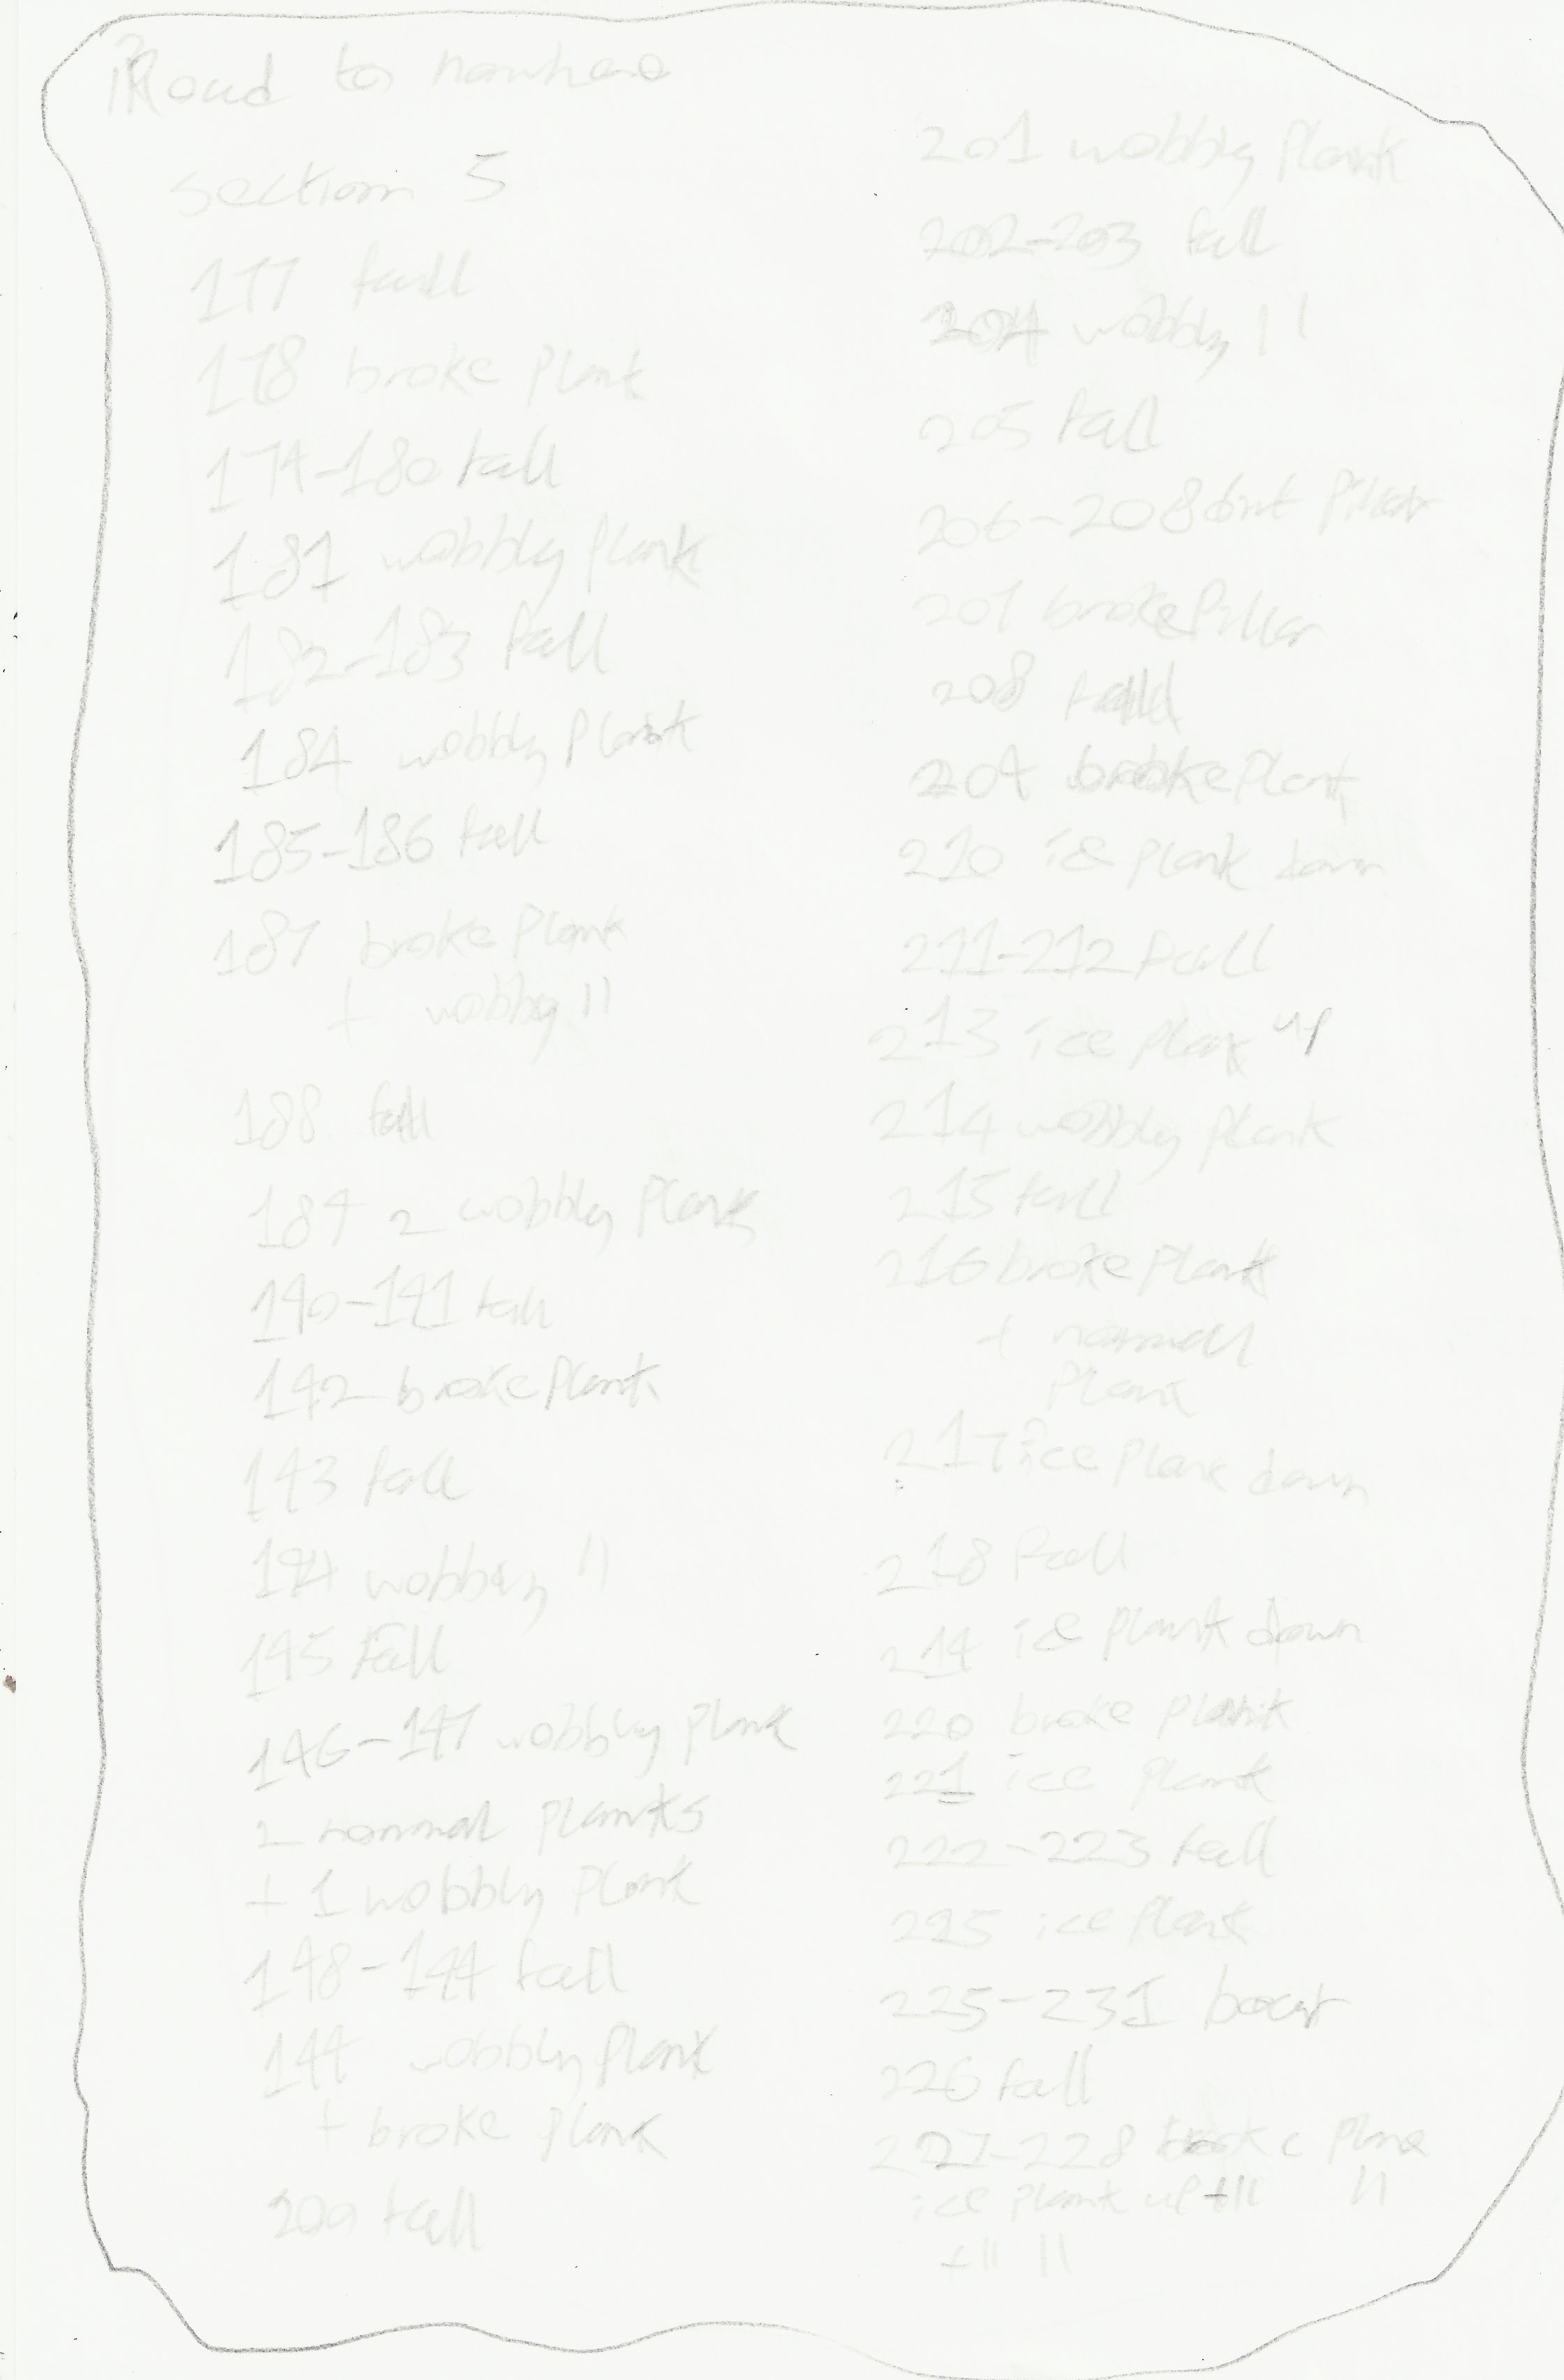 Road to nowhere
section 5
177 fall
178 broke plank
179-180 fall
181 wobbly plank
182-183 fall
184 wobbly plank
185-186 fall
187 broke plank
+ wobbly 11
188 fall
189 2 wobbly plank
190-191 fall
192 broke plank
193 fall
194 wobbly 11
195 fall
196-197 wobbly plank
2 normal planks
+ 1 wobbly plank
198-199 fall
199 wobbly plank
+ broke plank
200 fall
201 wobbly plank
202-203 fall
204 wobbly 11
205 fall
206-208 pillar
207 broke pillar
208 fall
209 broke plank
210 ice plank down
211-212 fall
213 ice plank up
214 wobbly plank
215 fall
216 broke plank
+ normal
plank
217 ice plank down
218 fall
219 ice plank down
220 broke plank
221 ice plank
222-223 fall
225 ice plank
225-231
226 fall
227-228 broke plank
ice plank up +11 11
+11 11